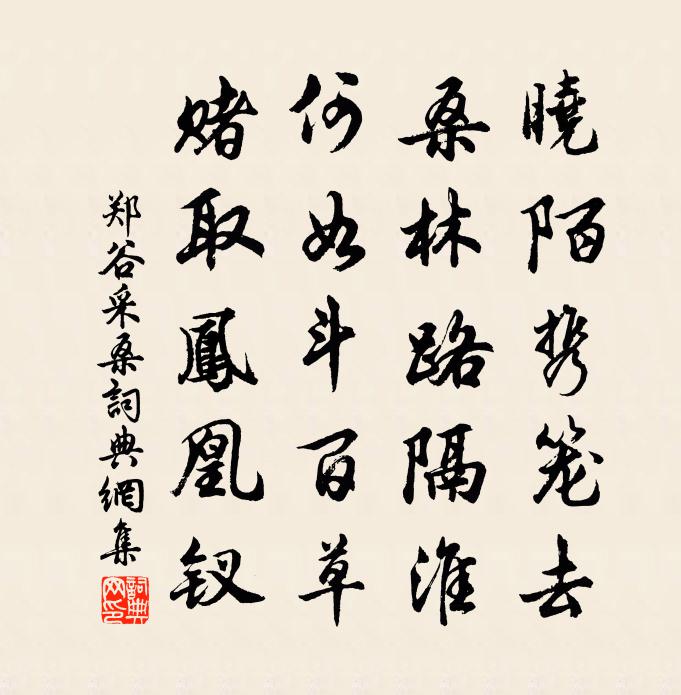 曉陌携笼去
桑林路隔淮
何如斗百草
赌取鳳凰钗
郑谷采桑詞典網集
詞典网印